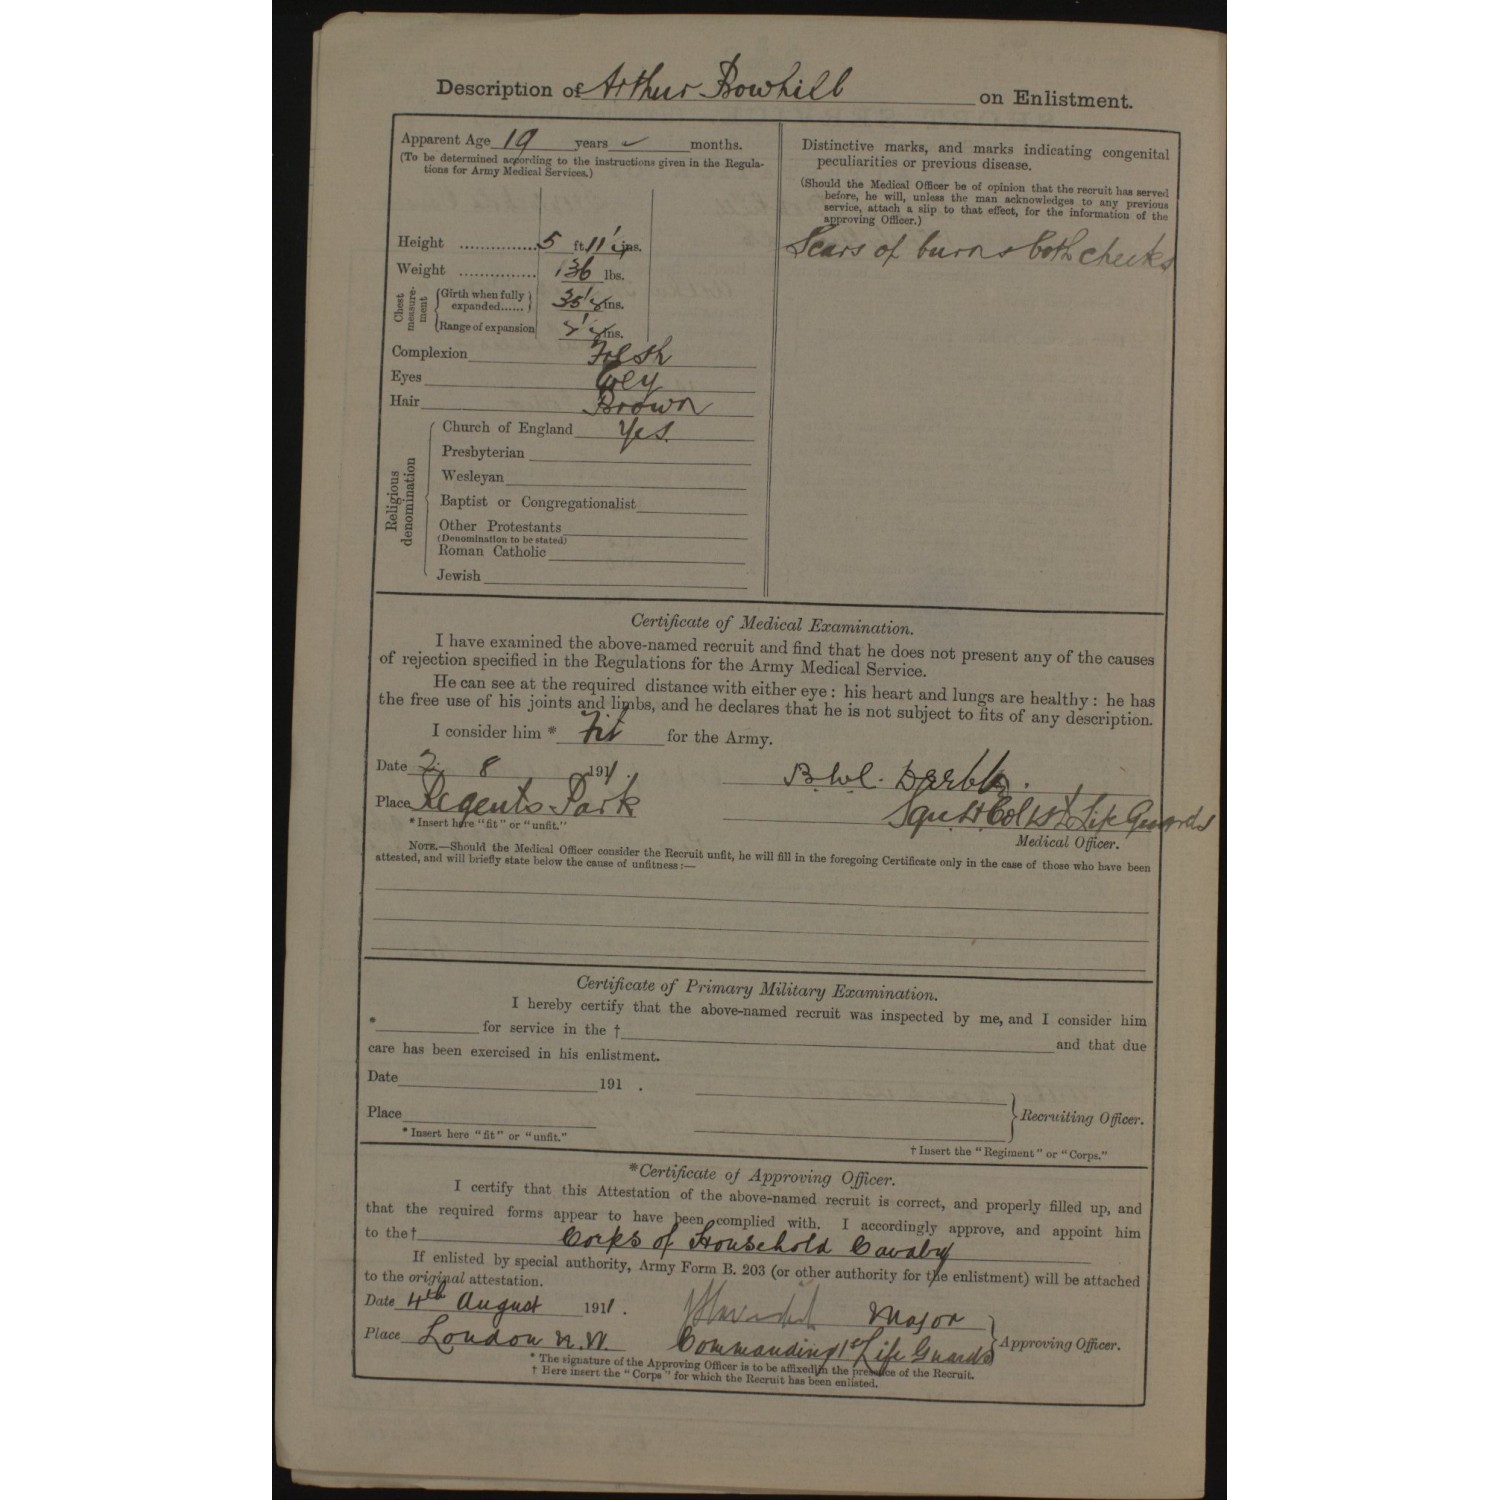 Description of Arthur Bowhill on Enlistment.
Apparent Age 19 years - months.
(To be determined according to the instructions given in the Regula-
tions for Army Medical Services.)
Height ............... 5 ft. 11 ins.
Weight ............... 136 lbs.
Chest measure-ment
Girth when fully expanded...... 35½ ins.
Range of expansion ½ ins.
Complexion Fresh
Eyes Grey
Hair Brown
Religious denomination
Church of England Yes.
Presbyterian
Wesleyan
Baptist or Congregationalist
Other Protestants
(Denomination to be stated)
Roman Catholic
Jewish
Distinctive marks, and marks indicating congenital
peculiarities or previous disease.
(Should the Medical Officer be of opinion that the recruit has served
before, he will, unless the man acknowledges to any previous
service, attach a slip to that effect, for the information of the
approving Officer.)
Scars of burns both cheeks
Certificate of Medical Examination.
I have examined the above-named recruit and find that he does not present any of the causes
of rejection specified in the Regulations for the Army Medical Service.
He can see at the required distance with either eye: his heart and lungs are healthy: he has
the free use of his joints and limbs, and he declares that he is not subject to fits of any description.
I consider him * Fit for the Army.
Date 2. 8 1911.
Place Regents Park
* Insert here "fit" or "unfit."
Lt Col 1st Life Guards
Medical Officer.
NOTE.—Should the Medical Officer consider the Recruit unfit, he will fill in the foregoing Certificate only in the case of those who have been
attested, and will briefly state below the cause of unfitness:—
Certificate of Primary Military Examination.
I hereby certify that the above-named recruit was inspected by me, and I consider him
* for service in the † and that due
care has been exercised in his enlistment.
Date 191 .
Place
Recruiting Officer.
* Insert here "fit" or "unfit."
† Insert the "Regiment" or "Corps."
*Certificate of Approving Officer.
I certify that this Attestation of the above-named recruit is correct, and properly filled up, and
that the required forms appear to have been complied with. I accordingly approve, and appoint him
to the† Corps of Household Cavalry
If enlisted by special authority, Army Form B. 203 (or other authority for the enlistment) will be attached
to the original attestation.
Date 4th August 1911. Major
Place London N.W. Commanding 1st Life Guards
Approving Officer.
* The signature of the Approving Officer is to be affixed in the presence of the Recruit.
† Here insert the "Corps" for which the Recruit has been enlisted.